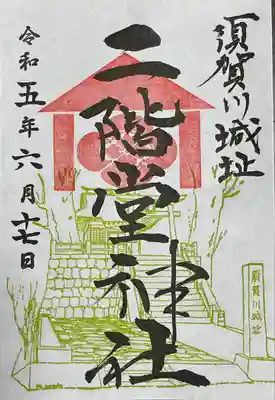 須賀川城址
二階堂神社
令和五年六月十七日
須賀川城址